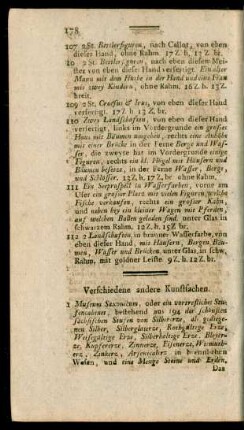 178
107 2 St. Bettlerfiguren, nach Callot, von eben
dieser Hand, ohne Rahm. 17 Z. h. 13 Z. br.
2 St. Bettlerfiguren, nach eben diesem Mei-
ster von eben dieser Hand verfertigt. Ein alter
Mann mit dem Huthe in der Hand und eine Frau
mit zwey Kindern, ohne Rahm. 16 Z. h. 13 Z.
breit.
109 2 St. Croesus & Irus, von eben dieser Hand
verfertigt. 17 Z. h. 13 Z. br.
110 Zwey Landschaften, von eben dieser Hand
verfertigt, links im Vordergrunde ein großes
Haus mit Bäumen umgeben, rechts eine
mit einer Brücke in der Ferne Berge und Was-
ser, die zweyte hat im Vordergrunde einige
Figuren, rechts ein kl. Hügel mit Häusern und
Bäumen besetzt, in der Ferne Wasser, Berge,
und Schlösser. 13 Z. h. 17 Z. br. ohne Rahm.
111 Ein Seeprospect in Wasserfarben, vorne am
Ufer ein großer Platz mit vielen Figuren, welche
Fische verkaufen, rechts ein großer Kahn,
und neben bey ein kleiner Wagen mit Pferden,
auf welchen Ballen geladen sind, unter Glas in
schwarzem Rahm. 12 Z. h. 15 Z. br.
112 2 Landschaften, in brauner Wasserfarbe, von
eben dieser Hand, mit Häusern, Bergen, Bäu-
men, Wasser und Brücken, unter Glas, in schw.
Rahm. mit goldner Leiste. 9 Z. h. 12 Z. br.
Verschiedene andere Kunstsachen.
Museum Saxonicum, oder ein vortrefliche Stu-
fencabinet, bestehend aus 194 der schönsten
sächsischen Stufen von Silbererze, als gediege-
nen Silber, Silberglaserze, Rothgültige Erze,
Weißgültige Erze, Silberhaltige Erze, Bleyer-
ze, Kupfererze, Zinnerze, Eisenerze, Wismuth-
erz, Zinkerz, Arsenicerz in
Wesen, und eine Menge Steine und Erden,
Das